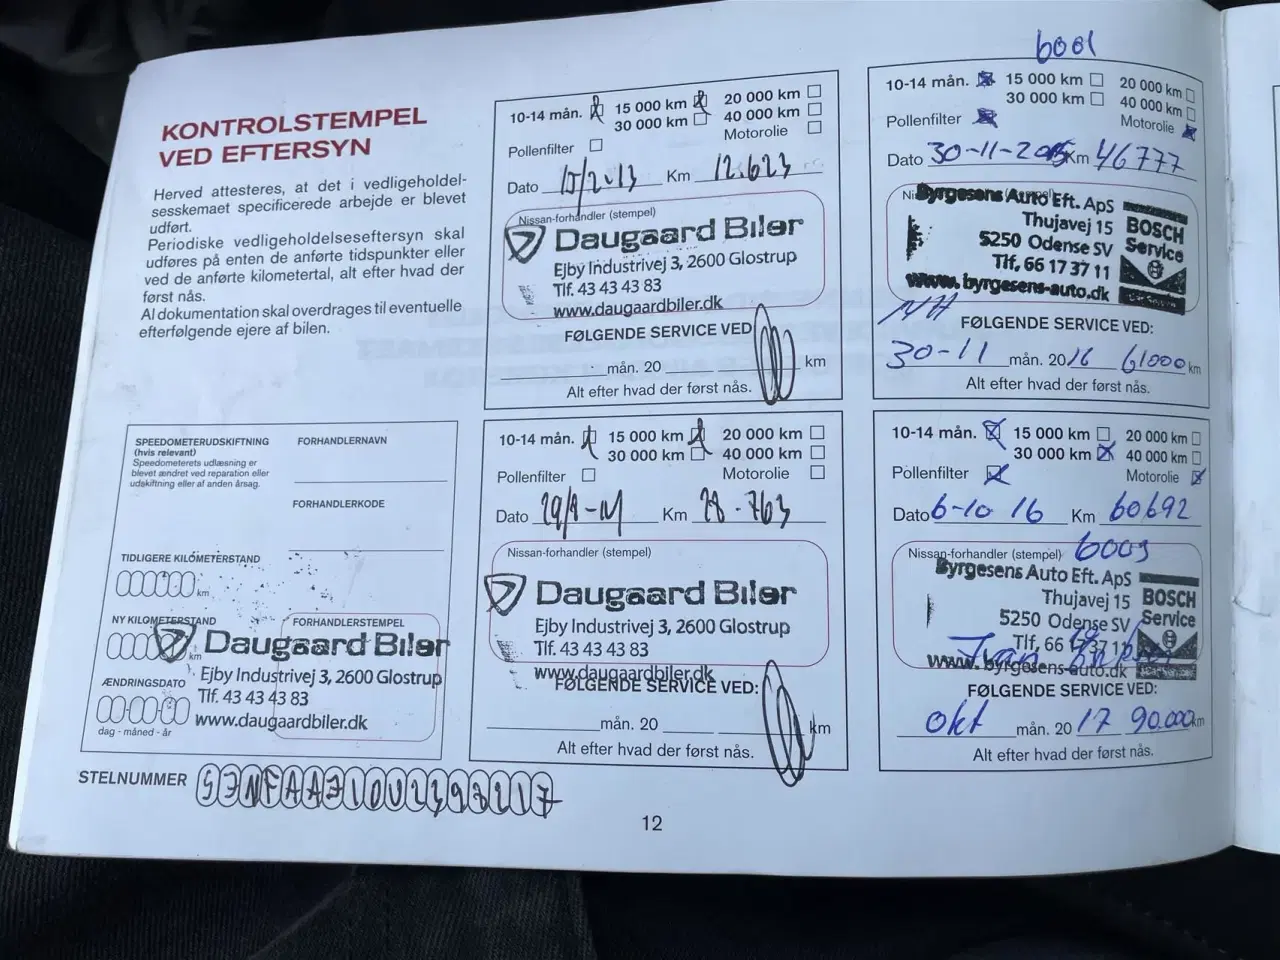 KONTROLSTEMPEL
VED EFTERSYN
Herved attesteres, at det i vedligeholdel-
sesskemaet specificerede arbejde er blevet
udført.
Periodiske vedligeholdelseseftersyn skal
udføres på enten de anførte tidspunkter eller
ved de anførte kilometertal, alt efter hvad der
først nås.
Al dokumentation skal overdrages til eventuelle
efterfølgende ejere af bilen.
SPEEDOMETERUDSKIFTNING
(hvis relevant)
Speedometerets udlæsning er
blevet ændret ved reparation eller
udskiftning eller af anden årsag.
FORHANDLERNAVN
FORHANDLERKODE
TIDLIGERE KILOMETERSTAND
km
NY KILOMETERSTAND
km
FORHANDLERSTEMPEL
Daugaard Biler
Ejby Industrivej 3, 2600 Glostrup
Tlf. 43 43 43 83
www.daugaardbiler.dk
ÆNDRINGSDATO
dag - måned - år
STELNUMMER
10-14 mån. 15 000 km 20 000 km
30 000 km 40 000 km
Pollenfilter Motorolie
Dato Km 12.623
Nissan-forhandler (stempel)
Daugaard Biler
Ejby Industrivej 3, 2600 Glostrup
Tlf. 43 43 43 83
www.daugaardbiler.dk
FØLGENDE SERVICE VED:
mån. 20 km
Alt efter hvad der først nås.
10-14 mån. 15 000 km 20 000 km
30 000 km 40 000 km
Pollenfilter Motorolie
Dato Km 28.763
Nissan-forhandler (stempel)
Daugaard Biler
Ejby Industrivej 3, 2600 Glostrup
Tlf. 43 43 43 83
www.daugaardbiler.dk
FØLGENDE SERVICE VED:
mån. 20 km
Alt efter hvad der først nås.
6001
10-14 mån. 15 000 km 20 000 km
30 000 km 40 000 km
Pollenfilter Motorolie
Dato 30-11-2015 Km 46777
Byrgesens Auto Eft. ApS
Thujavej 15
5250 Odense SV
Tlf, 66 17 37 11
www.byrgesens-auto.dk
BOSCH
Service
FØLGENDE SERVICE VED:
30-11 mån. 2016 61000 km
Alt efter hvad der først nås.
10-14 mån. 15 000 km 20 000 km
30 000 km 40 000 km
Pollenfilter Motorolie
Dato 6-10 16 Km 60692
Nissan-forhandler (stempel)
Byrgesens Auto Eft. ApS
Thujavej 15
5250 Odense SV
Tlf, 66 17 37 11
www.byrgesens-auto.dk
BOSCH
Service
FØLGENDE SERVICE VED:
okt mån. 2017 90.000 km
Alt efter hvad der først nås.
12